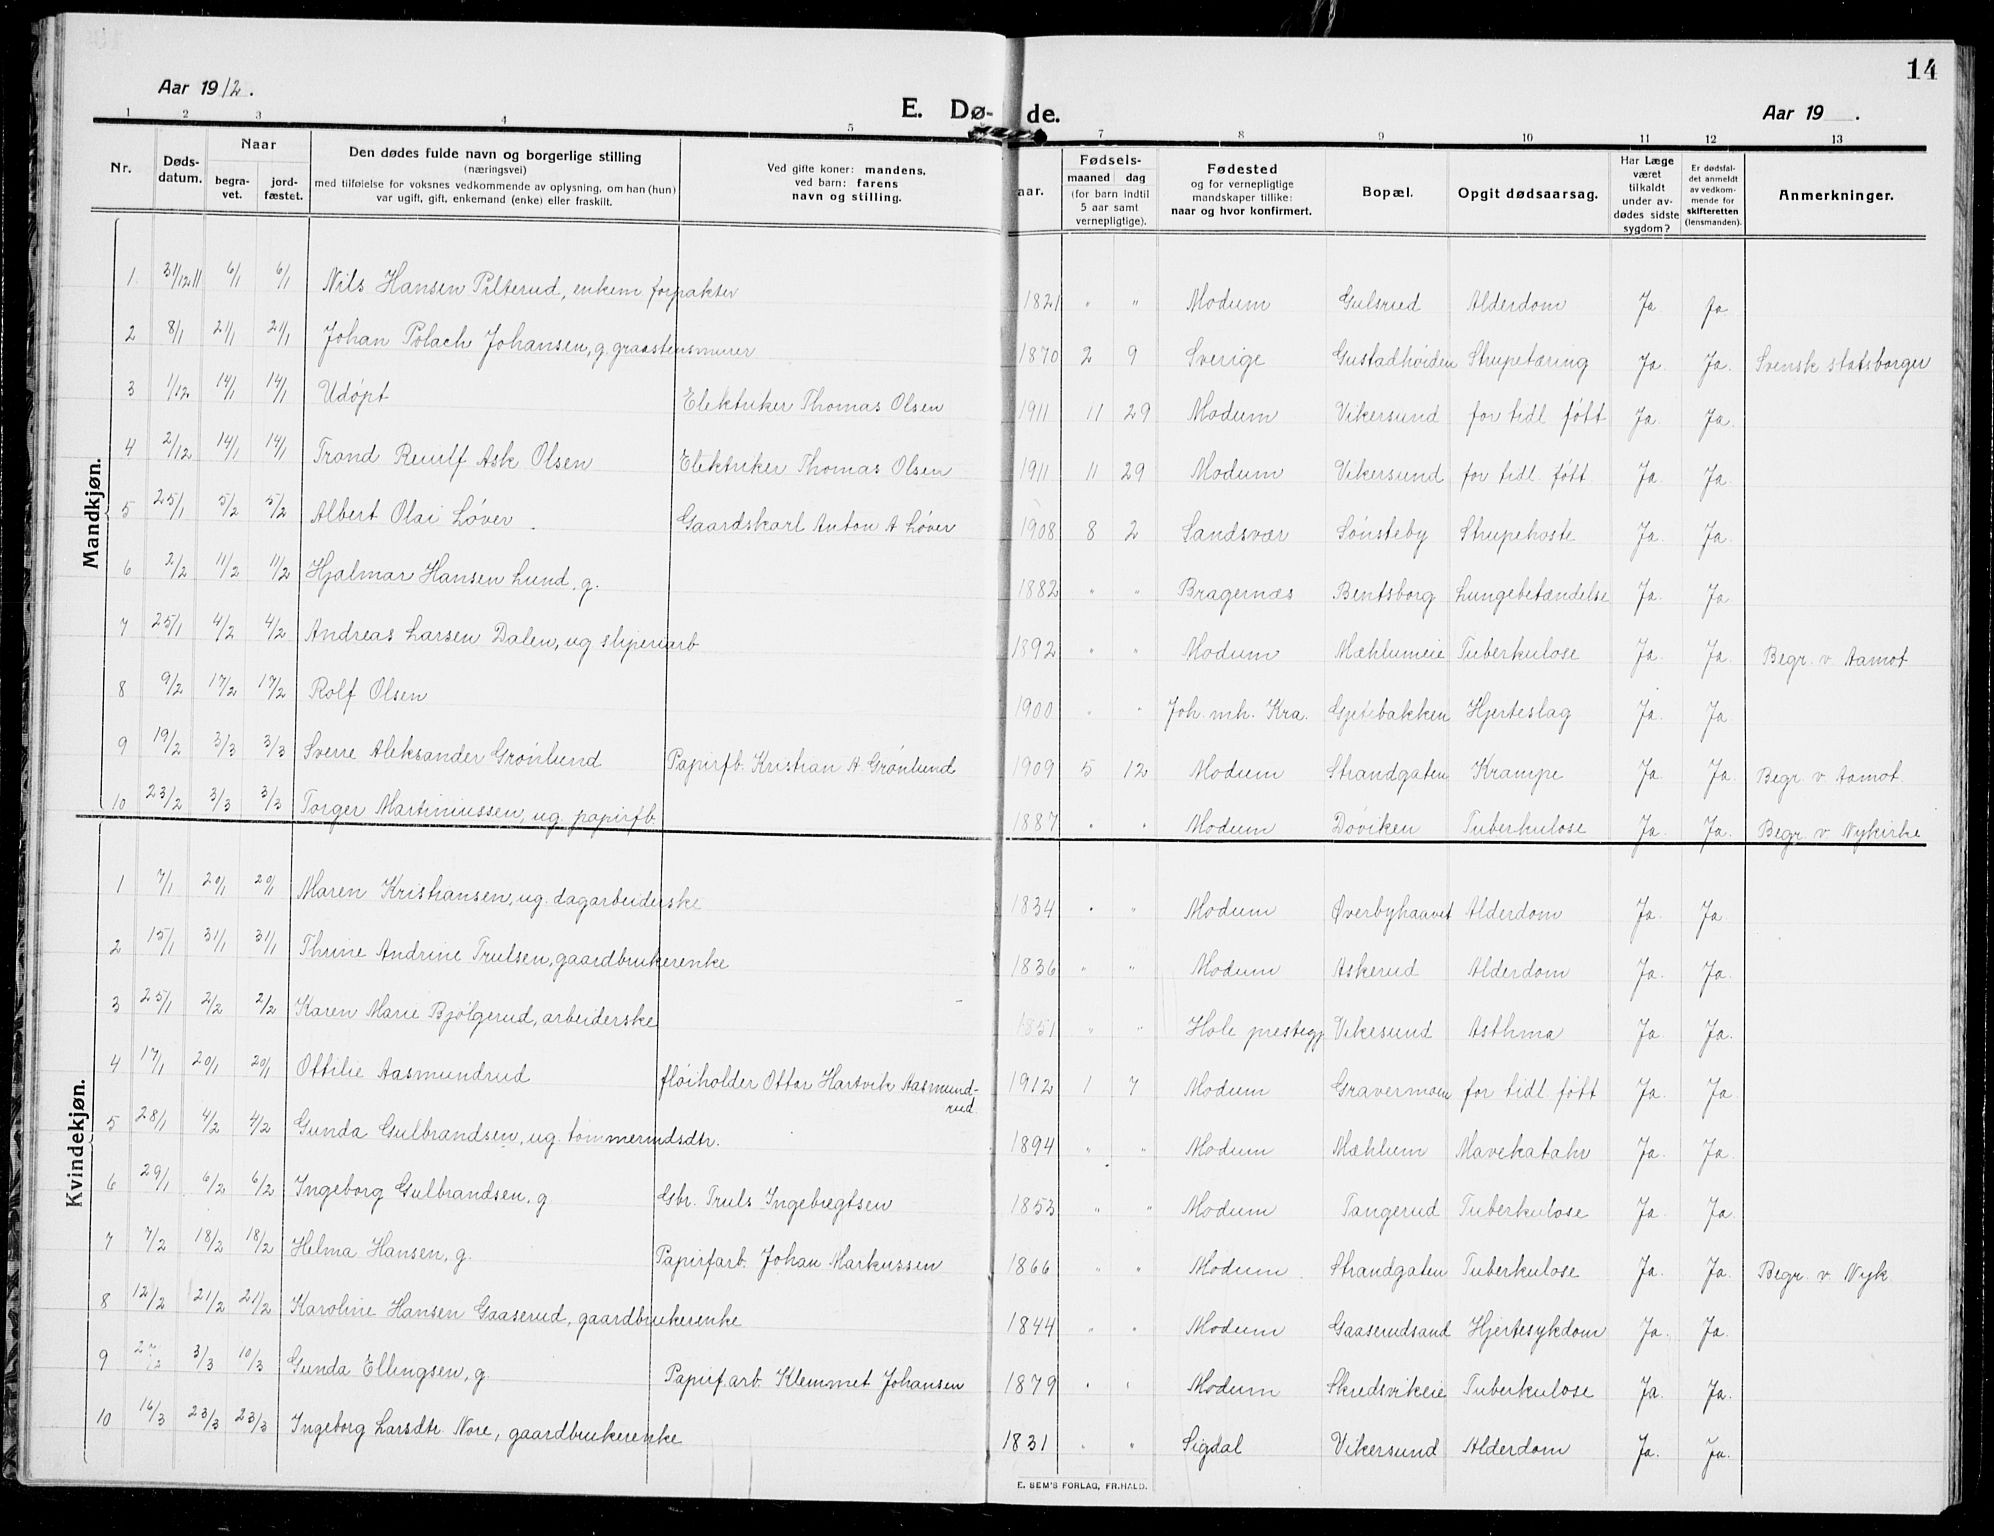 14
Aar 1912.
E. Dø- de.
Aar 19 .
1 2 3 4 5 7 8 9 10 11 12 13
Nr. Døds-datum. Naar begra-vet. jord-fæstet. Den dødes fulde navn og borgerlige stilling (næringsvei) med tilføielse for voksnes vedkommende av oplysning, om han (hun) var ugift, gift, enkemand (enke) eller fraskilt. Ved gifte koner: mandens, ved barn: farens navn og stilling. aar. Fødsels- maaned dag (for barn indtil 5 aar samt vernepligtige). Fødested og for vernepligtige mandskaper tillike: naar og hvor konfirmert. Bopæl. Opgit dødsaarsag. Har Læge været tilkaldt under av-dødes sidste sygdom? Er dødsfal-det anmeldt av vedkom-mende for skifteretten (lensmanden). Anmerkninger.
Mandkjøn.
1 31/12 11 6/1 6/1 Nils Hansen Pilterud, enkem forpakter 1821 " " Modum Gulsrud Alderdom Ja Ja
2 8/1 21/1 21/1 Johan Polach Johansen, g, graastensmurer 1870 2 9 Sverige Gustadhviden Strupetæring Ja. Ja. Svensk statsborger
3 1/12 14/1 14/1 Udøpt Elektriker Thomas Olsen 1911 11 29 Modum Vikersund for tidl født Ja. Ja.
4 2/12 14/1 14/1 Trond Reulf Ask Olsen Elektriker Thomas Olsen 1911 11 29 Modum Vikersund for tidl. født Ja. Ja.
5 25/1 5/2 5/2 Albert Olai Løver Gaardskarl Anton A Løver 1908 8 2 Sandsvær Sønsteby Strupehoste Ja. Ja.
6 2/2 11/2 11/2 Hjalmar Hansen Lund, g. 1882 " " Bragernæs Bentsborg Lungebetændelse Ja. Ja
7 25/1 4/2 4/2 Andreas Larsen Dalen, ug sliperiarb 1892 " " Modum Mæhlumeie Tuberkulose Ja. Ja. Begr. v. Aamot
8 9/2 17/2 17/2 Rolf Olsen 1900 " " Joh. mh. Kra. Gjetebakken Hjerteslag Ja. Ja
9 19/2 3/3 3/3 Sverre Aleksander Grønlund Papirfb. Kristian A. Grønlund 1909 5 12 Modum Strandgaten Krampe Ja. Ja. Begr. v Aamot.
10 23/2 3/3 3/3 Torger Martiniussen, ug. papirfb. 1887 " " Modum Døviken Tuberkulose Ja. Ja. Begr. v Nykirke
Kvindekjøn.
1 7/1 20/1 20/1 Maren Kristiansen, ug. dagarbeiderske 1834 " " Modum Øverbyhaavet Alderdom Ja. Ja
2 15/1 31/1 31/1 Thrine Andrine Trulsen, gaardbrukerenke 1836 " " Modum Askerud Alderdom Ja. Ja.
3 25/1 2/2 2/2 Karen Marie Bjølgerud, arbeiderske 1851 " " Hole prestegj Vikesund Asthma Ja. Ja.
4 17/1 20/1 20/1 Ottilie Aasmundrud fløiholder Ottar Hartvik Aasmund-
rud
1912 1 7 Modum Gravermoen for tidl født Ja. Ja.
5 28/1 4/2 4/2 Gunda Gulbrandsen, ug. tømmermdsdtr. 1894 " " Modum Mæhlum Mavekatahr Ja. Ja.
6 29/1 6/2 6/2 Ingeborg Gulbrandsen, g Gbr. Truls Ingebrigtsen 1853 " " Modum Tangerud Tuberkulose Ja. Ja.
7 7/2 18/2 18/2 Helma Hansen, g. Papirfarb. Johan Markussen 1866 " " Modum. Strandgaten Tuberkulose Ja. Ja. Begr. v. Nyk.
8 12/2 21/2 21/2 Karoline Hansen Gaaserud, gaardbrukerenke 1844 " " Modum Gaaserudsand Hjertesykdom Ja. Ja.
9 27/2 3/3 10/3 Gunda Ellingsen, g. Papirf.arb. Klemmet Johansen 1879 " " Modum Skredsvikeie Tuberkulose Ja. Ja.
10 16/3 23/3 23/3 Ingeborg Larsdtr. Nore, gaardbrukerenke 1831 " " Sigdal Vikersund Alderdom Ja. Ja.
E. SEM'S FORLAG, FR.HALD.